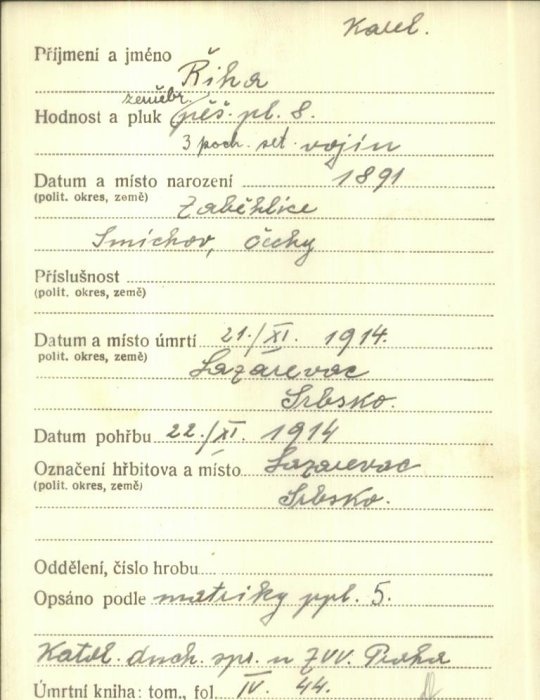 Karel.
Příjmení a jméno
Řiha
zeměbr.
Hodnost a pluk pěš. pl. 8.
3 poch. set. vojín
Datum a místo narození 1891
(polit. okres, země)
Zaběhlice
Smíchov, Čechy
Příslušnost
(polit. okres, země)
Datum a místo úmrtí 21./XI. 1914.
polit. okres, země)
Lazarevac
Srbsko.
Datum pohřbu 22./XI. 1914
Označení hřbitova a místo Lazarevac
(polit. okres, země)
Srbsko.
Oddělení, číslo hrobu
Opsáno podle matriky ppl. 5.
Katol. duch. spr. u ZVV. Praha
Úmrtní kniha: tom., fol. IV. 44.